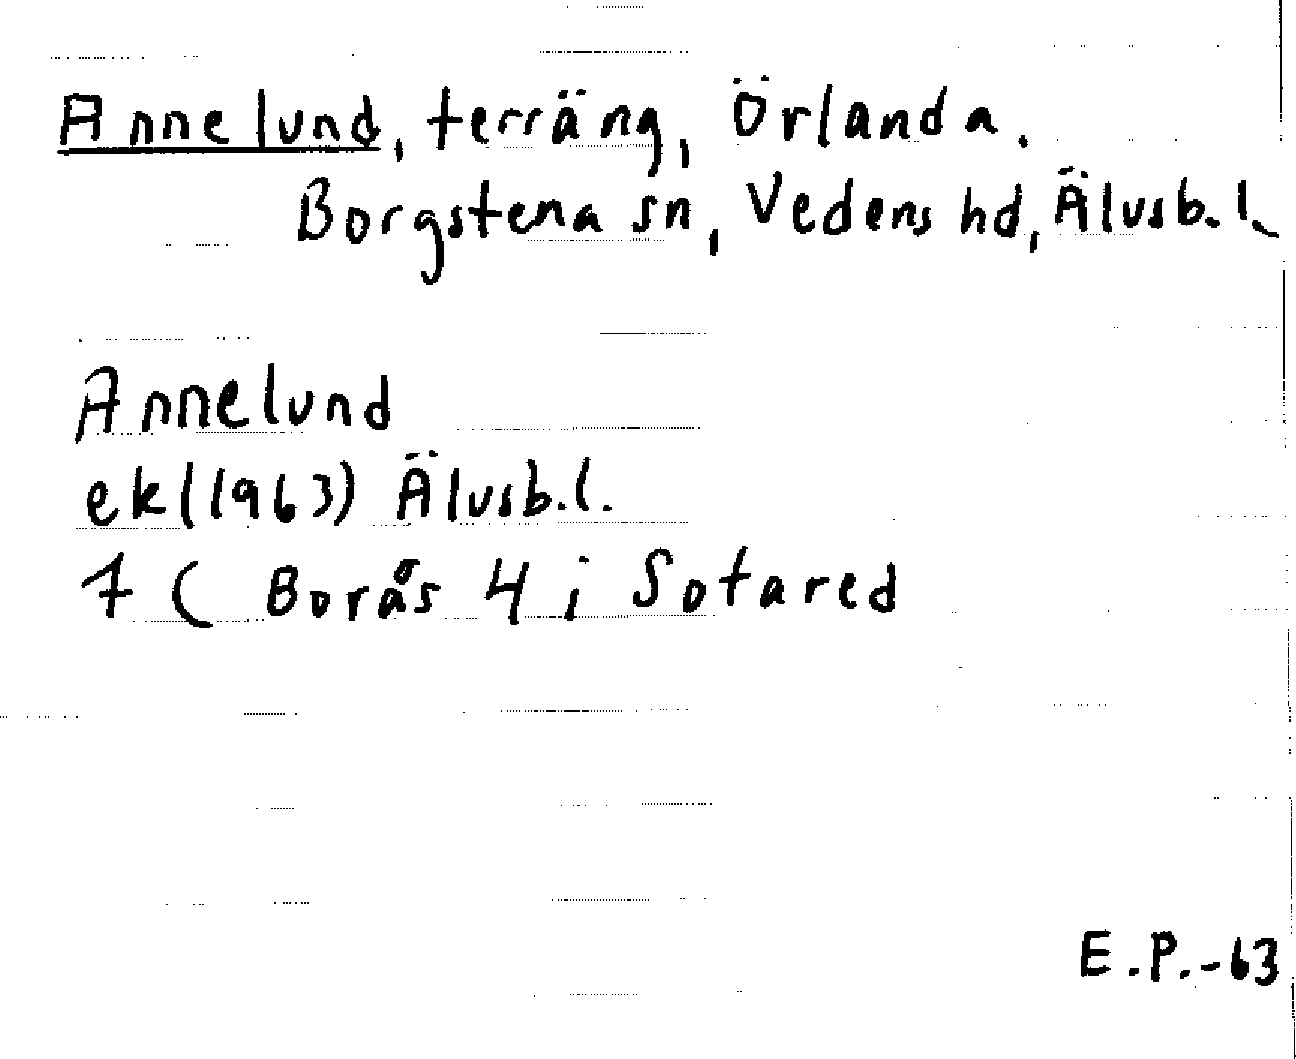 Annelund, terräng, Örlanda.
Borgstena sn, Vedens hd, Älvsb. l.
Annelund
ek (1963) Älvsb. l.
7 ( Borås 4 ; Sotared
E.P.-63